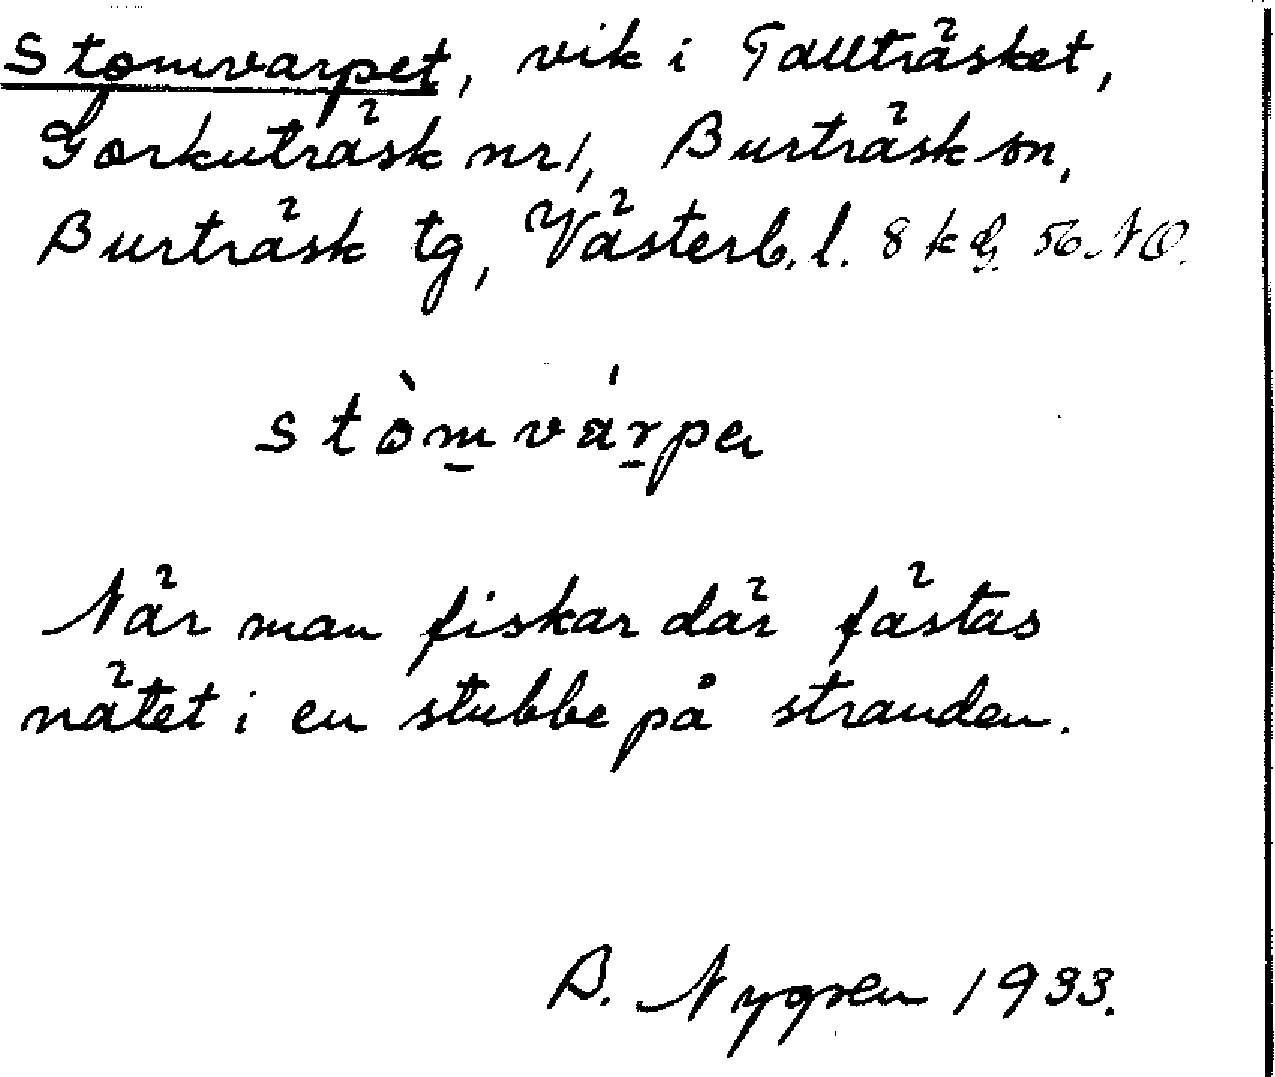 Stomvarpet, vik i Tallträsket,
Gorkuträsk nr 1, Burträsk sn,
Burträsk tg, Västerb. l. 8 kg. 56 NO.
stòm̲vár̲pa
När man fiskar där fästas
nätet i en stubbe på stranden.
B. Nygren 1933.